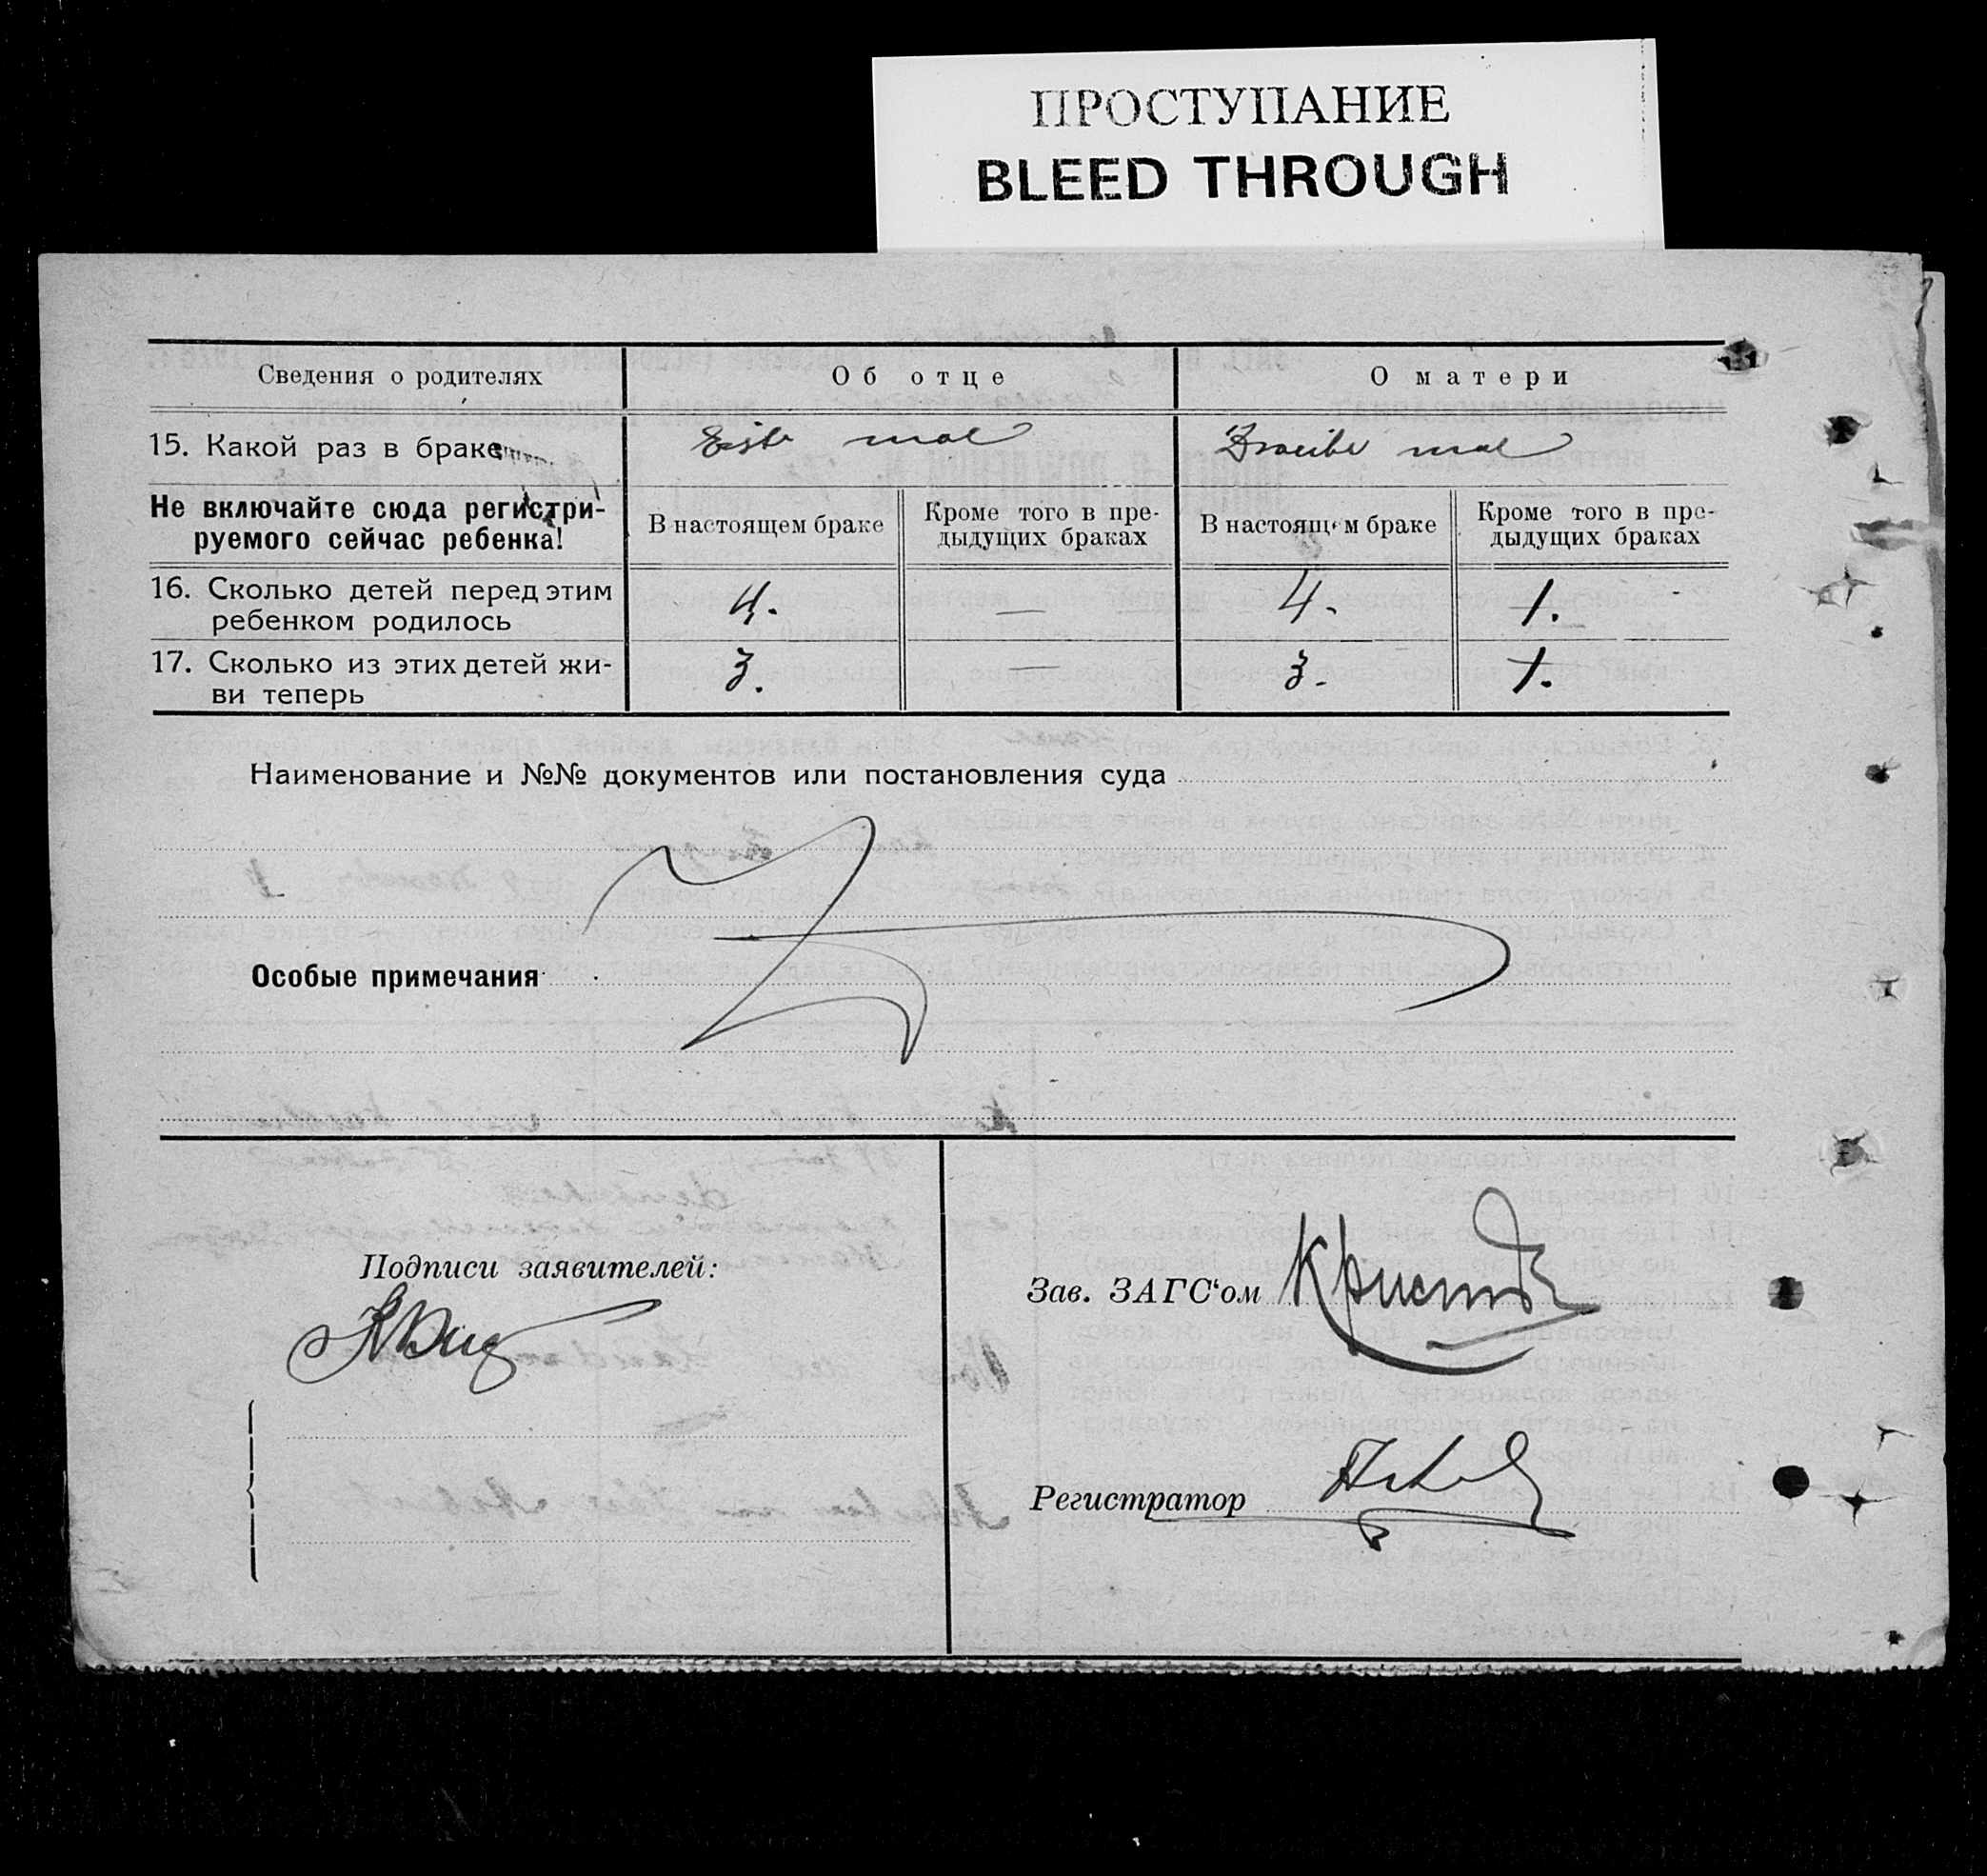 ПРОСТУПАНИЕ
BLEED THROUGH
Сведения о родителях Об отце О матери
15. Какой раз в браке Erste mal Zweite mal
Не включайте сюда регистри-
руемого сейчас ребенка!
В настоящем браке
Кроме того в пре-
дыдущих браках
В настоящем браке
Кроме того в пре-
дыдущих браках
16. Сколько детей перед этим
ребенком родилось
4. — 4. 1.
17. Сколько из этих детей жи-
ви теперь
3. — 3. 1.
Наименование и №№ документов или постановления суда
Особые примечания
Подписи заявителей:
Зав. ЗАГС'ом
Регистратор